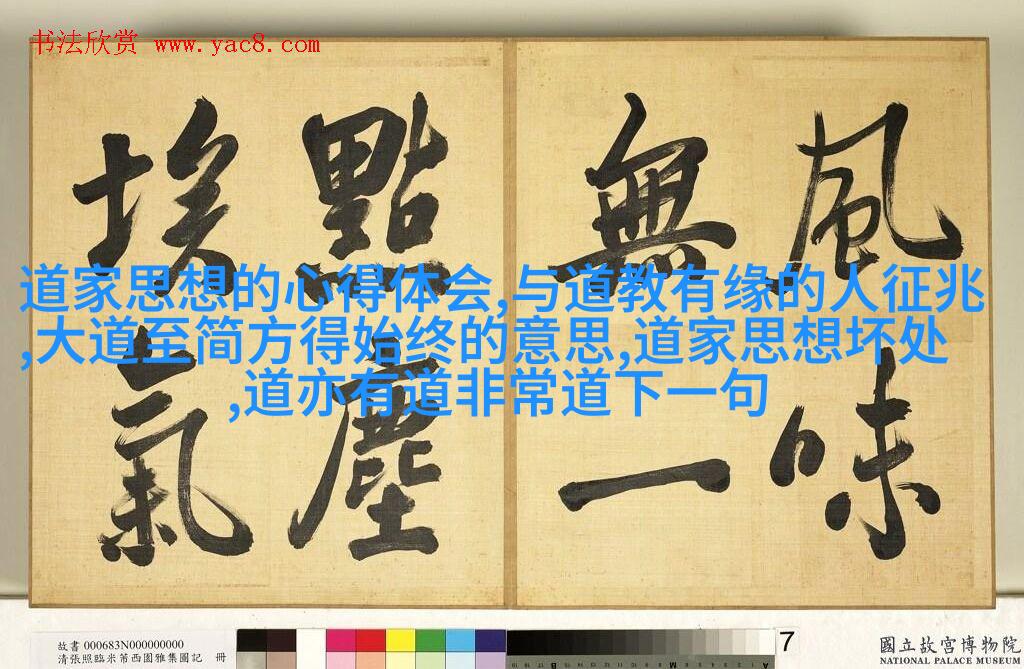 书法欣赏 www.yac8.com
風味
無一
點塵
埃氣
道家思想的心得体会,与道教有缘的人征兆
,大道至简方得始终的意思,道家思想坏处
,道亦有道非常道下一句
故書 000683N000000000
清張照臨米芾西園雅集圖記 冊
7
國立故宮博物院
NATIONAL PALACE MUSEUM